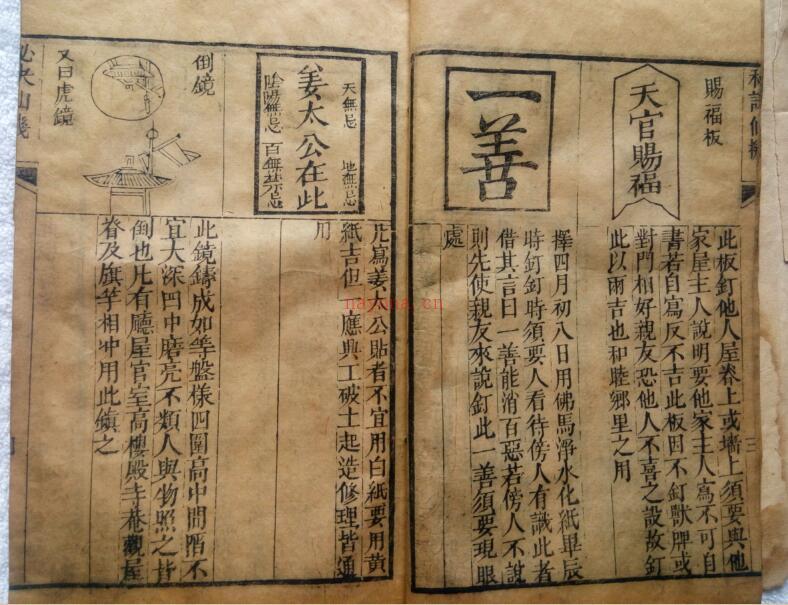 秘訣仙機
三
賜福板
天官賜福
此板釘他人屋脊上或墻上須要與他
家屋主人說明要他家主人寫不可自
書若自寫反不吉此板因不釘獸牌或
對門相好親友恐他人不喜之設故釘
此以兩吉也和睦鄉里之用
一善
擇四月初八日用佛馬淨水化紙畢辰
時釘釘時須要人看待傍人有識此者
借其言曰一善能消百惡若傍人不說
則先使親友來說釘此一善須要現眼
處
天無忌 地無忌
姜太公在此
陰陽無忌 百無禁忌
凡寫姜太公貼者不宜用白紙要用黃
紙吉但一應興工破土起造修理皆通
用
倒鏡
又曰虎鏡
此鏡鑄成如等盤樣四圍高中間陷不
宜大深凹中磨亮不類人與物照之皆
倒也凡有廳屋官室高樓殿寺菴觀屋
脊及旗竿相冲用此鎮之
秘訣仙機
nayona.cn